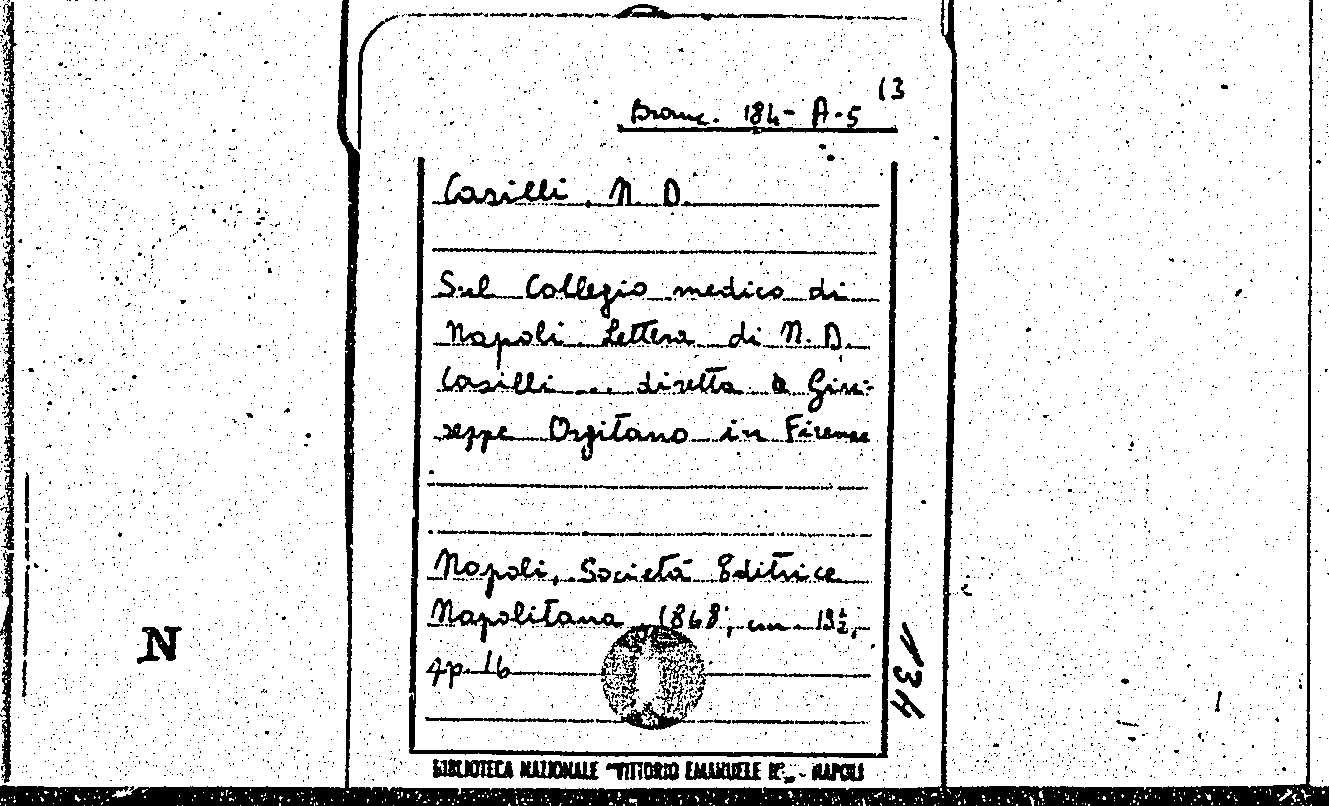 13
Branc. 184- A-5
Casilli, N. D.
Sul Collegio medico di
Napoli. Lettera di N. D.
Casilli ... diretta a Giu-
seppe Orgitano in Firenze
Napoli, Società Editrice
Napolitana, 1848; cm.
pp. 16
N
134
BIBLIOTECA NAZIONALE "VITTORIO EMANUELE III" - NAPOLI